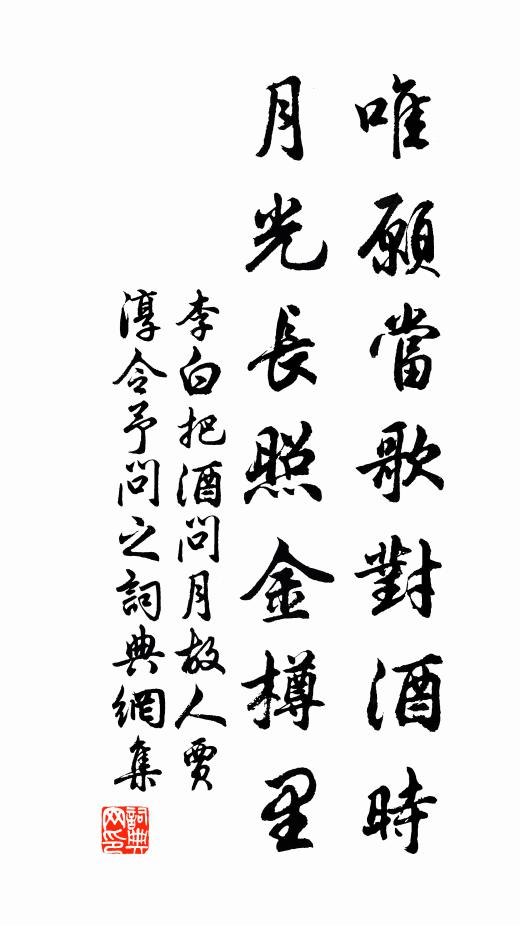 唯願當歌對酒時
月光長照金樽里
李白把酒問月故人賈
淳令予問之詞典網集
詞典
网印